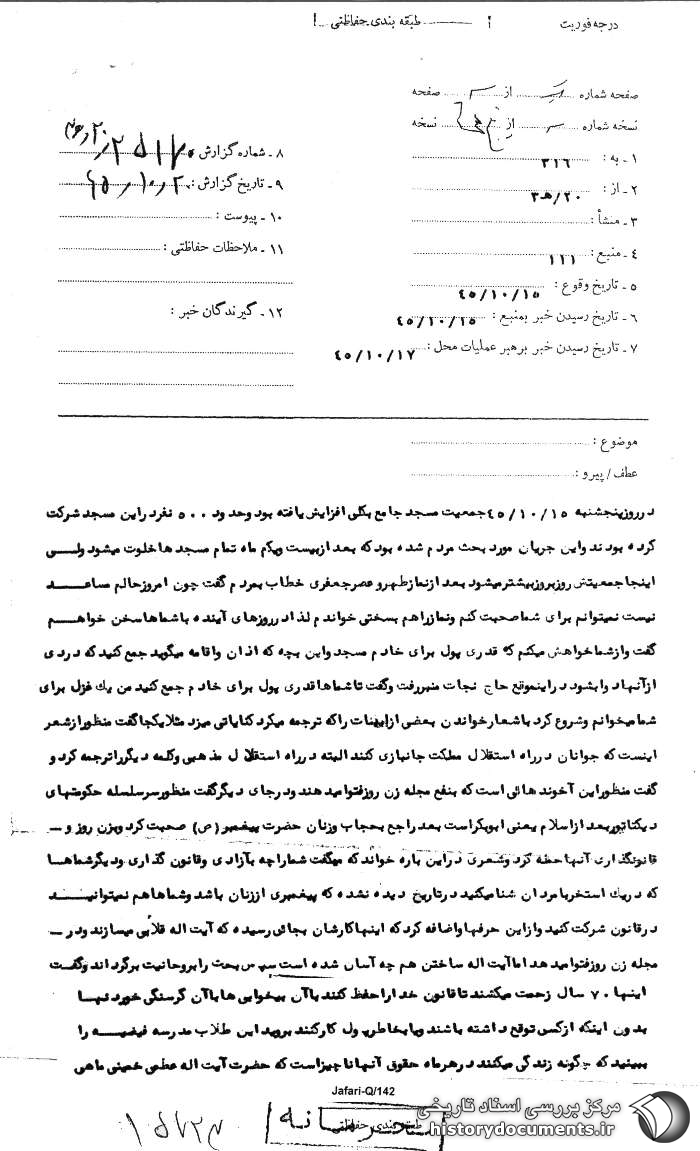 درجه فوریت
طبقه بندی حفاظتی
صفحه شماره از صفحه
نسخه شماره از نسخه
۱ ـ به : ۳۱۶
۲ ـ از : ۲۰/هـ ۳
۳ ـ منشأ :
۴ ـ منبع : ۱۱۱
۵ ـ تاریخ وقوع : ۴۵/۱۰/۱۵
۶ ـ تاریخ رسیدن خبر بمنبع : ۴۵/۱۰/۱۵
۷ ـ تاریخ رسیدن خبر برهبر عملیات محل : ۴۵/۱۰/۱۷
۸ ـ شماره گزارش
۹ ـ تاریخ گزارش : ۴۵/۱۰/۲۰
۱۰ ـ پیوست :
۱۱ ـ ملاحظات حفاظتی :
۱۲ ـ گیرندگان خبر :
موضوع :
عطف/پیرو :
در روز پنجشنبه ۴۵/۱۰/۱۵ جمعیت مسجد جامع بکلی افزایش یافته بود و حدود ۵۰۰ نفر در این مسجد شرکت
کرده بودند و این جریان مورد بحث مردم شده بود که بعد از بیست و یکم ماه تمام مسجدها خلوت میشود ولی
اینجا جمعیتش روز بروز بیشتر میشود بعد از نماز ظهر و عصر جعفری خطاب بمردم گفت چون امروز حالم مساعد
نیست نمیتوانم برای شما صحبت کنم و نماز را هم بسختی خواندم لذا در روزهای آینده با شماها سخن خواهم
گفت و از شما خواهش میکنم که قدری پول برای خادم مسجد و این بچه که اذان و اقامه میگوید جمع کنید که دردی
از آنها دوا بشود در اینموقع حاج نجات منبر رفت و گفت تا شماها قدری پول برای خادم جمع کنید من یک غزل برای
شما میخوانم و شروع کرد باشعار خواندن بعضی از ابیات را که ترجمه میکرد کنایاتی میزد مثلا یکجا گفت منظور از شعر
اینست که جوانان در راه استقلال مملکت جانبازی کنند البته در راه استقلال مذهبی و کلمه دیگر را ترجمه کرد و
گفت منظور این آخوندهائی است که بنفع مجله زن روز فتوا میدهند و در جای دیگر گفت منظور سرسلسله حکومتهای
دیکتاتور بعد از اسلام یعنی ابوبکر است بعد راجع بحجاب و زنان حضرت پیغمبر (ص) صحبت کرد و بزن روز و ـ
قانونگذاری آنها حمله کرد و شعری در این باره خواند که میگفت شما را چه بآزادی و قانون گذاری و دیگر شماها
که در یک استخر با مردان شنا میکنید در تاریخ دیده نشده که پیغمبری از زنان باشد و شماها هم نمیتوانید
در قانون شرکت کنید و از این حرفها و اضافه کرد که اینها کارشان بجائی رسیده که آیت اله قلابی میسازند و در ـ
مجله زن روز فتوا میدهد اما آیت اله ساختن هم چه آسان شده است سپس بحث را بروحانیت برگرداند و گفت
اینها ۷۰ سال زحمت میکشند تا قانون خدا را حفظ کنند با آن بیخوابی ها با آن گرسنگی خوردنها
بدون اینکه از کسی توقع داشته باشند و یا بخاطر پول کار کنند بروید این طلاب مدرسه فیضیه را
ببینید که چگونه زندگی میکنند در هر ماه حقوق آنها ناچیز است که حضرت آیت اله عظمی خمینی ماهی
Jafari-Q/142
طبقه بندی حفاظتی
محرمانه
۱۵۷۲۳
مرکز بررسی اسناد تاریخی
historydocuments.ir